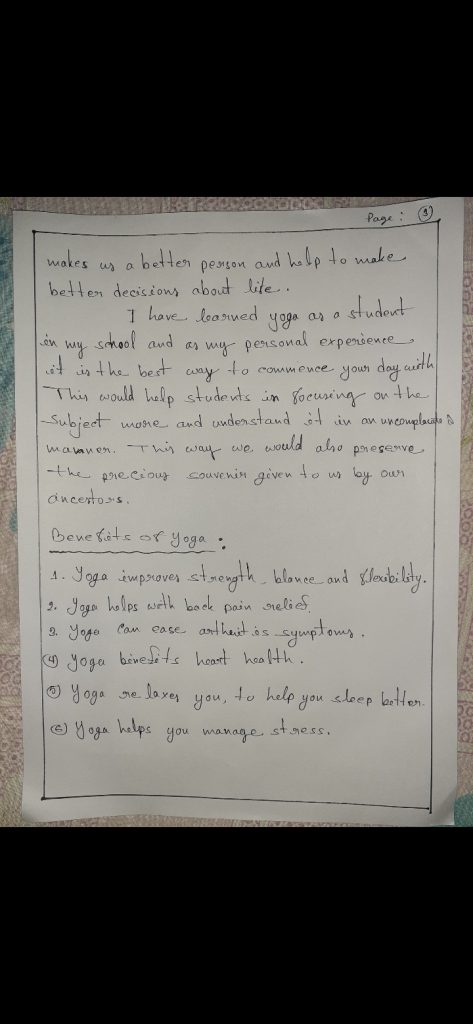 Page : 3
makes us a better person and help to make
better decisions about life.
I have learned yoga as a student
in my school and as my personal experience
it is the best way to commence your day with
This would help students in focusing on the
subject more and understand it in an
manner. This way we would also preserve
the precious souvenir given to us by our
ancestors.
Benefits of Yoga :
1. Yoga improves strength, blance and flexibility.
2. Yoga helps with back pain relief.
3. Yoga can ease artheitis symptoms.
(4) Yoga binefits heart health.
(5) Yoga relaxes you, to help you sleep better.
(6) Yoga helps you manage stress.